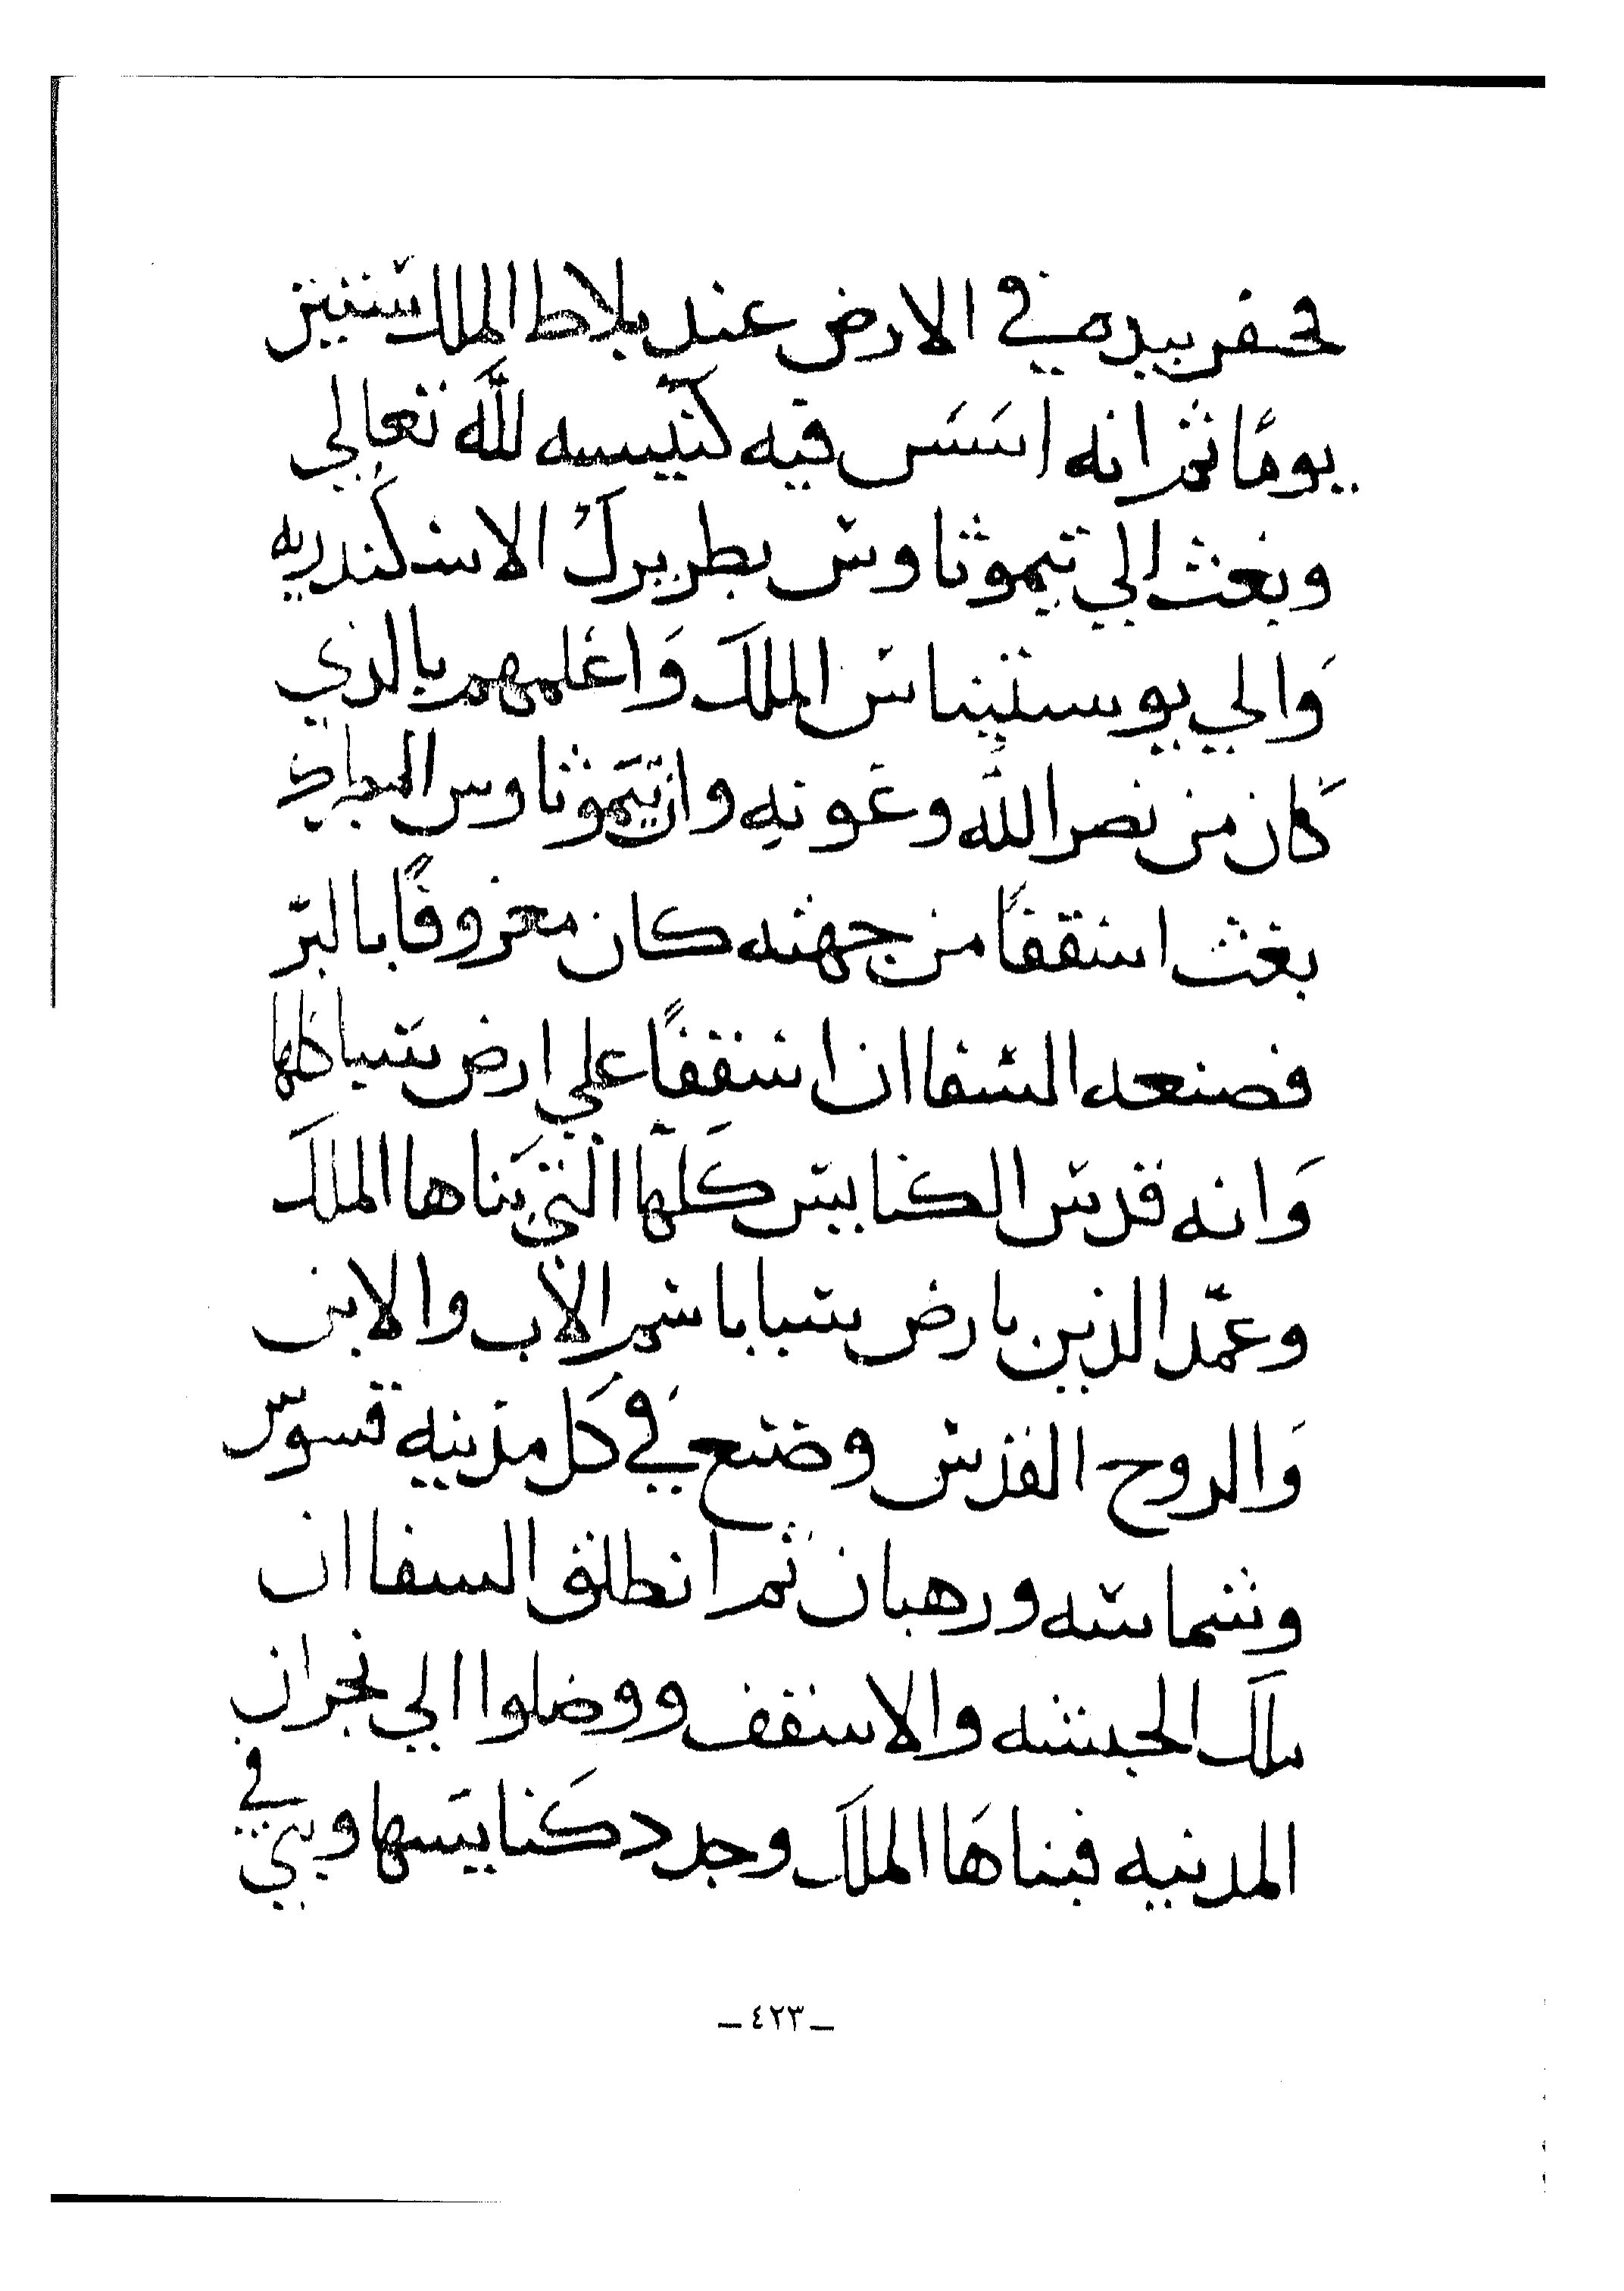 فحفر بيده في الارض عند بلاط الملك ستين
يومًا ثم انه اسَسَ فيه كنيسه للّه تعالي
وبعث الي تيموثاوس بطريرك الاسكندريه
وَالي يوستيناس الملك وَاعلمهم بالذي
كان من نصر اللّه وعونه وان تيموثاوس البطرك
بعث اسقفًا من جهته كان معروفًا بالبرّ
فصنعه السفاان اسقفًا علي ارض سبا كلها
وَانه قدس الكنايس كلها التي بناها الملك
وعمّد الذين بارض سبا باسم الاب والابن
وَالروح القدس وضع في كل مدينه قسوس
وشماسه ورهبان ثم انطلق السفاان
ملك الحبشه والاسقف ووصلوا الي نجران
المدينه فبناهَا الملك وجدد كنايسها وبني في
ـ ٤٢٣ ـ